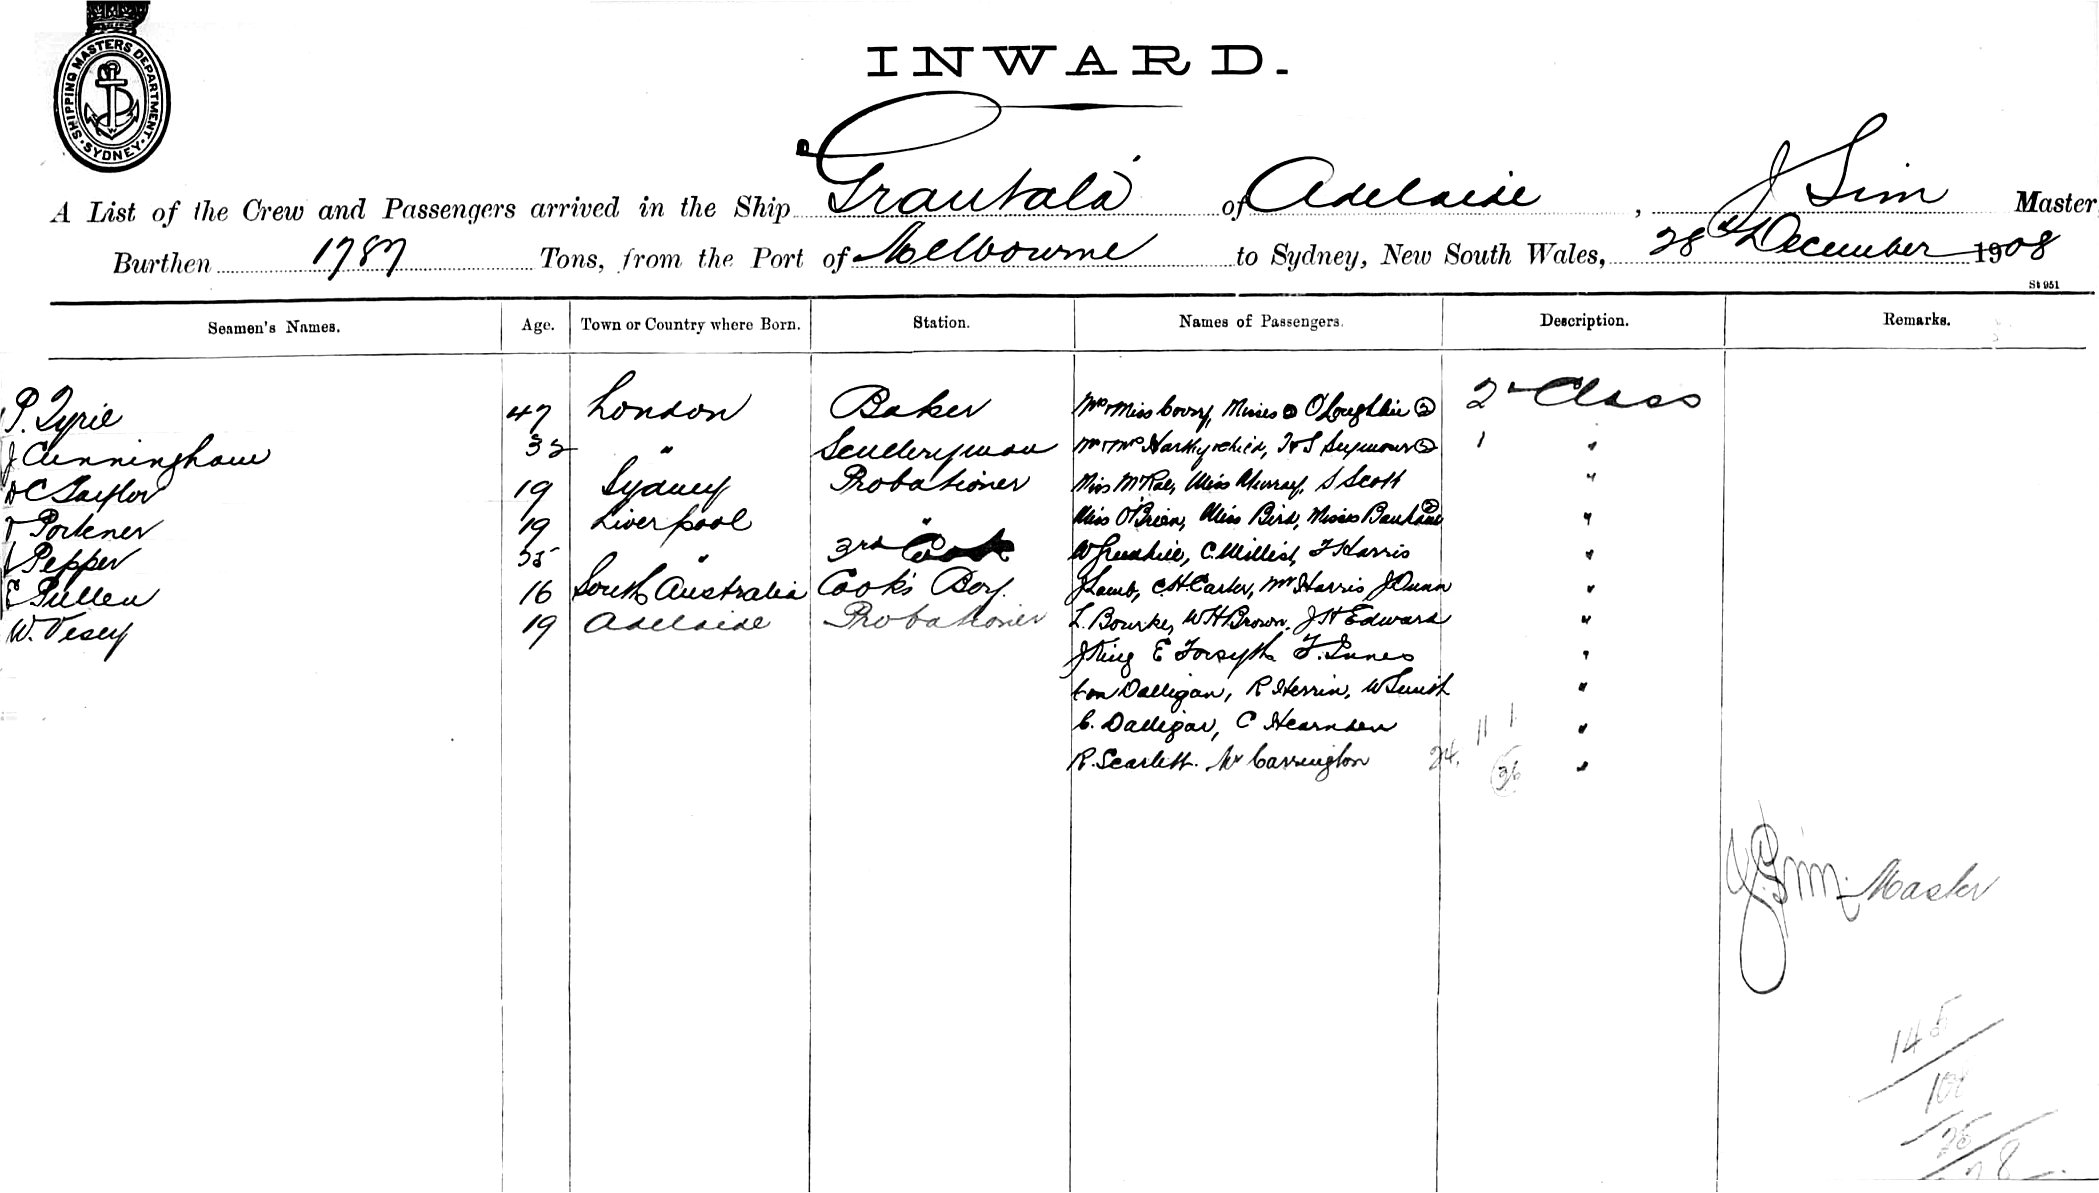 SHIPPING MASTERS DEPARTMENT
SYDNEY
INWARD.
A List of the Crew and Passengers arrived in the Ship Grantala of Adelaide, J Sim Master
Burthen 1787 Tons, from the Port of Melbourne to Sydney, New South Wales, 28th December 1908
St 951
Seamen's Names. Age. Town or Country where Born. Station. Names of Passengers. Description. Remarks.
P. Tyrie 47 London Baker Mrs & Miss Misses O'Loughlin 2 2nd Class
J Cunningham 32 " Sculleryman Mr & Mrs & child, H & S Seymour 2 1 "
D C Taylor 19 Sydney Probationer Miss McRae, Miss Murray, S Scott "
Portener 19 Liverpool " Miss O'Brien, Miss Bird, Misses 2 "
Pepper 35 " 3rd Cook W Greenhill, C. Millist, F Harris "
E Pullen 16 South Australia Cook's Boy. J Lamb, C H. Carter, Mr Harris J Dunn "
W. Vesey 19 Adelaide Probationer L. Bourke, W H Brown, J H Edward "
J King E Forsyth F. Innes "
Dalligan, R Herrin, W Smith "
C. Dalligan, C Hearnden 11 1 "
R. Scarlett. Mr Carrington 24. 36 "
J. Sim Master
145
101